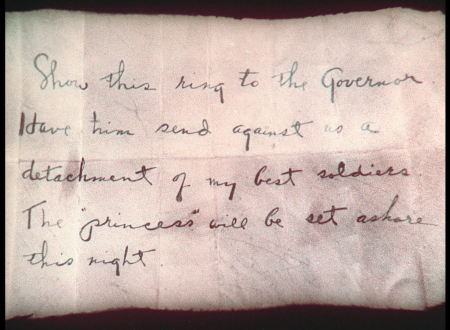 Show this ring to the Governor.
Have him send against us a
detachment of my best soldiers.
The "princess" will be set ashore
this night